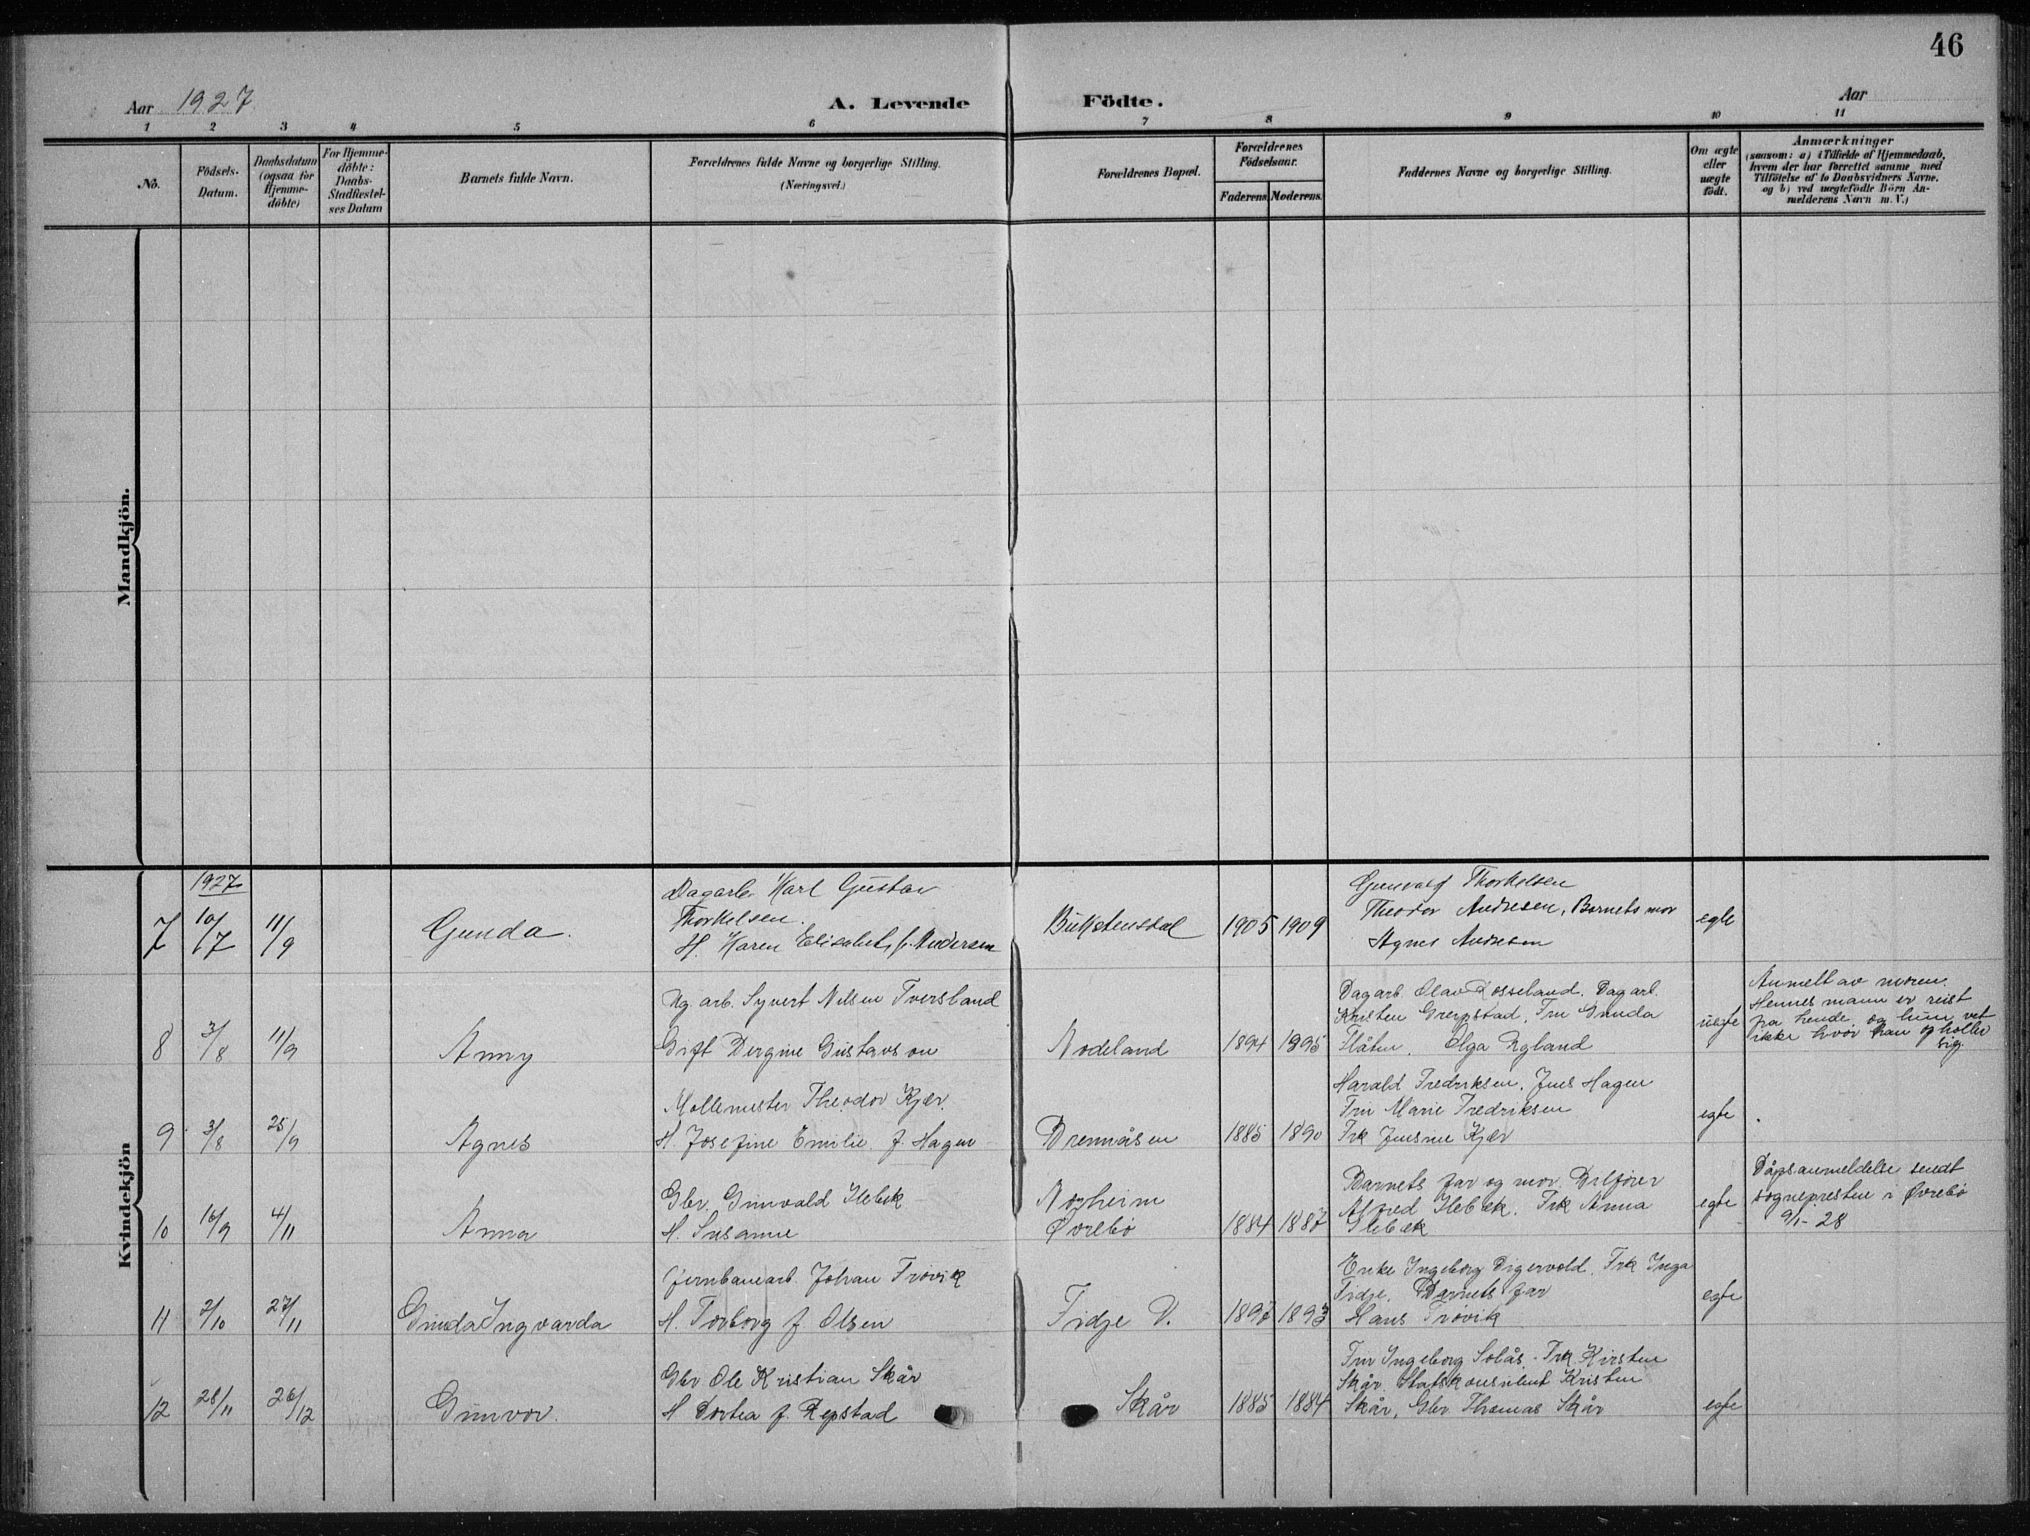 46
Aar 1927
A. Levende Födte.
Aar
1 2 3 4 5 6 7 8 9 10 11
No.
Födsels-
Datum.
Daabsdatum
(ogsaa for
Hjemme-
döbte)
For Hjemme-
döbte:
Daabs-
Stadfæstel-
ses Datum
Barnets fulde Navn.
Forældrenes fulde Navne og borgerlige Stilling.
(Næringsvei.)
Forældrenes Bopæl.
Forældrenes
Födselsaar.
Faderens Moderens.
Faddernes Navne og borgerlige Stilling.
Om ægte
eller
uægte
födt.
Anmærkninger
(saasom: a) i Tilfælde af Hjemmedaab,
hvem der har forrettet samme, med
Tilföielse af to Daabsvidners Navne.
og b) ved uægtefödte Börn An-
melderens Navn m. V.)
Mandkjön.
Kvindekjön
1927
7 10/7 11/9 Gunda.
Dagarb. Karl Gustav
Thorkelsen.
H. Karen Elisabet, f. Andersen
Bukstensdal 1905 1909
Gunvald Thorkelsen
Theodor Andresen, Barnets mor
Agnes Andresen
egte
8 3/8 11/9 Anny
Ug. arb. Syvert Nilsen Tversland
Gift Bergine Gustavson
Nodeland 1894 1895
Dagarb. Olav Rosseland. Dagarb.
Kristen Greipstad. Fru Gunda
Flåten. Olga Egland
uegte
Anmelt av moren.
Hennes mann er reist
fra hende, og hun vet
ikke hvor han opholder
sig.
9 3/8 25/9 Agnes
Møllemester Theodor Kjær.
H. Josefine Emilie f. Hagen
Brennåsen 1885 1890
Harald Fredriksen. Jens Hagen
Fru Marie Fredriksen
Frk Jensine Kjær
egte
10 16/9 4/11 Anna
Gbr. Gunvald Ilebek
H. Susanne
Norheim
Øvrebø 1884 1887
Barnets far og mor. Bilfører
Alfred Ilebæk. Frk Anna
Ilebæk
egte
Dåpsanmeldelse sendt
sognepresten i Øvrebø
9/1-28
11 2/10 27/11 Gunda Ingvarda
Jernbanearb. Johan Trøvik
H. Torborg f. Olsen
Fidje V. 1897 1893
Enke Ingeborg Digervold. Frk Inga
Fidje. Barnets far
Hans Trøvik
egte
12 28/11 26/12 Gunvor.
Gbr Ole Kristian Skår
H Dortea f. Repstad
Skår 1885 1884
Fru Ingeborg Solås. Frk Kirsten
Skår. Statskonsulent Kristen
Skår, Gbr. Thomas Skår
egte